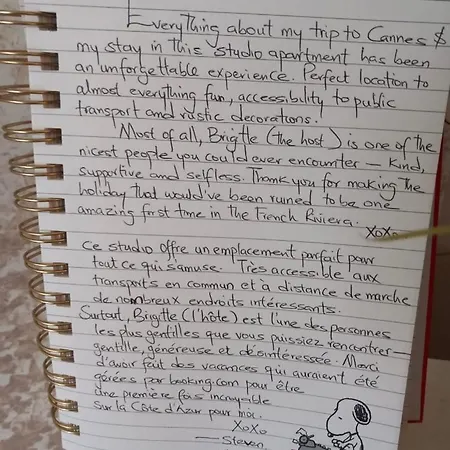 Everything about my trip to Cannes &
my stay in this studio apartment has been
an unforgettable experience. Perfect location to
almost everything fun, accessibility to public
transport and rustic decorations.
Most of all, Brigitte (the host) is one of the
nicest people you could ever encounter – kind,
supportive and selfless. Thank you for making the
holiday that would've been ruined to be one
amazing first time in the French Riviera.
XoXo
Ce studio offre un emplacement parfait pour
tout ce qui s'amuse. Très accessible aux
transports en commun et à distance de marche
de nombreux endroits intéressants.
Surtout, Brigitte (l'hôte) est l'une des personnes
les plus gentilles que vous puissiez rencontrer –
gentille, généreuse et désintéressée. Merci
d'avoir fait des vacances qui auraient été
gérées par booking.com pour être
une première fois incroyable
sur la Côte d'Azur pour moi.
XoXo
– Steven